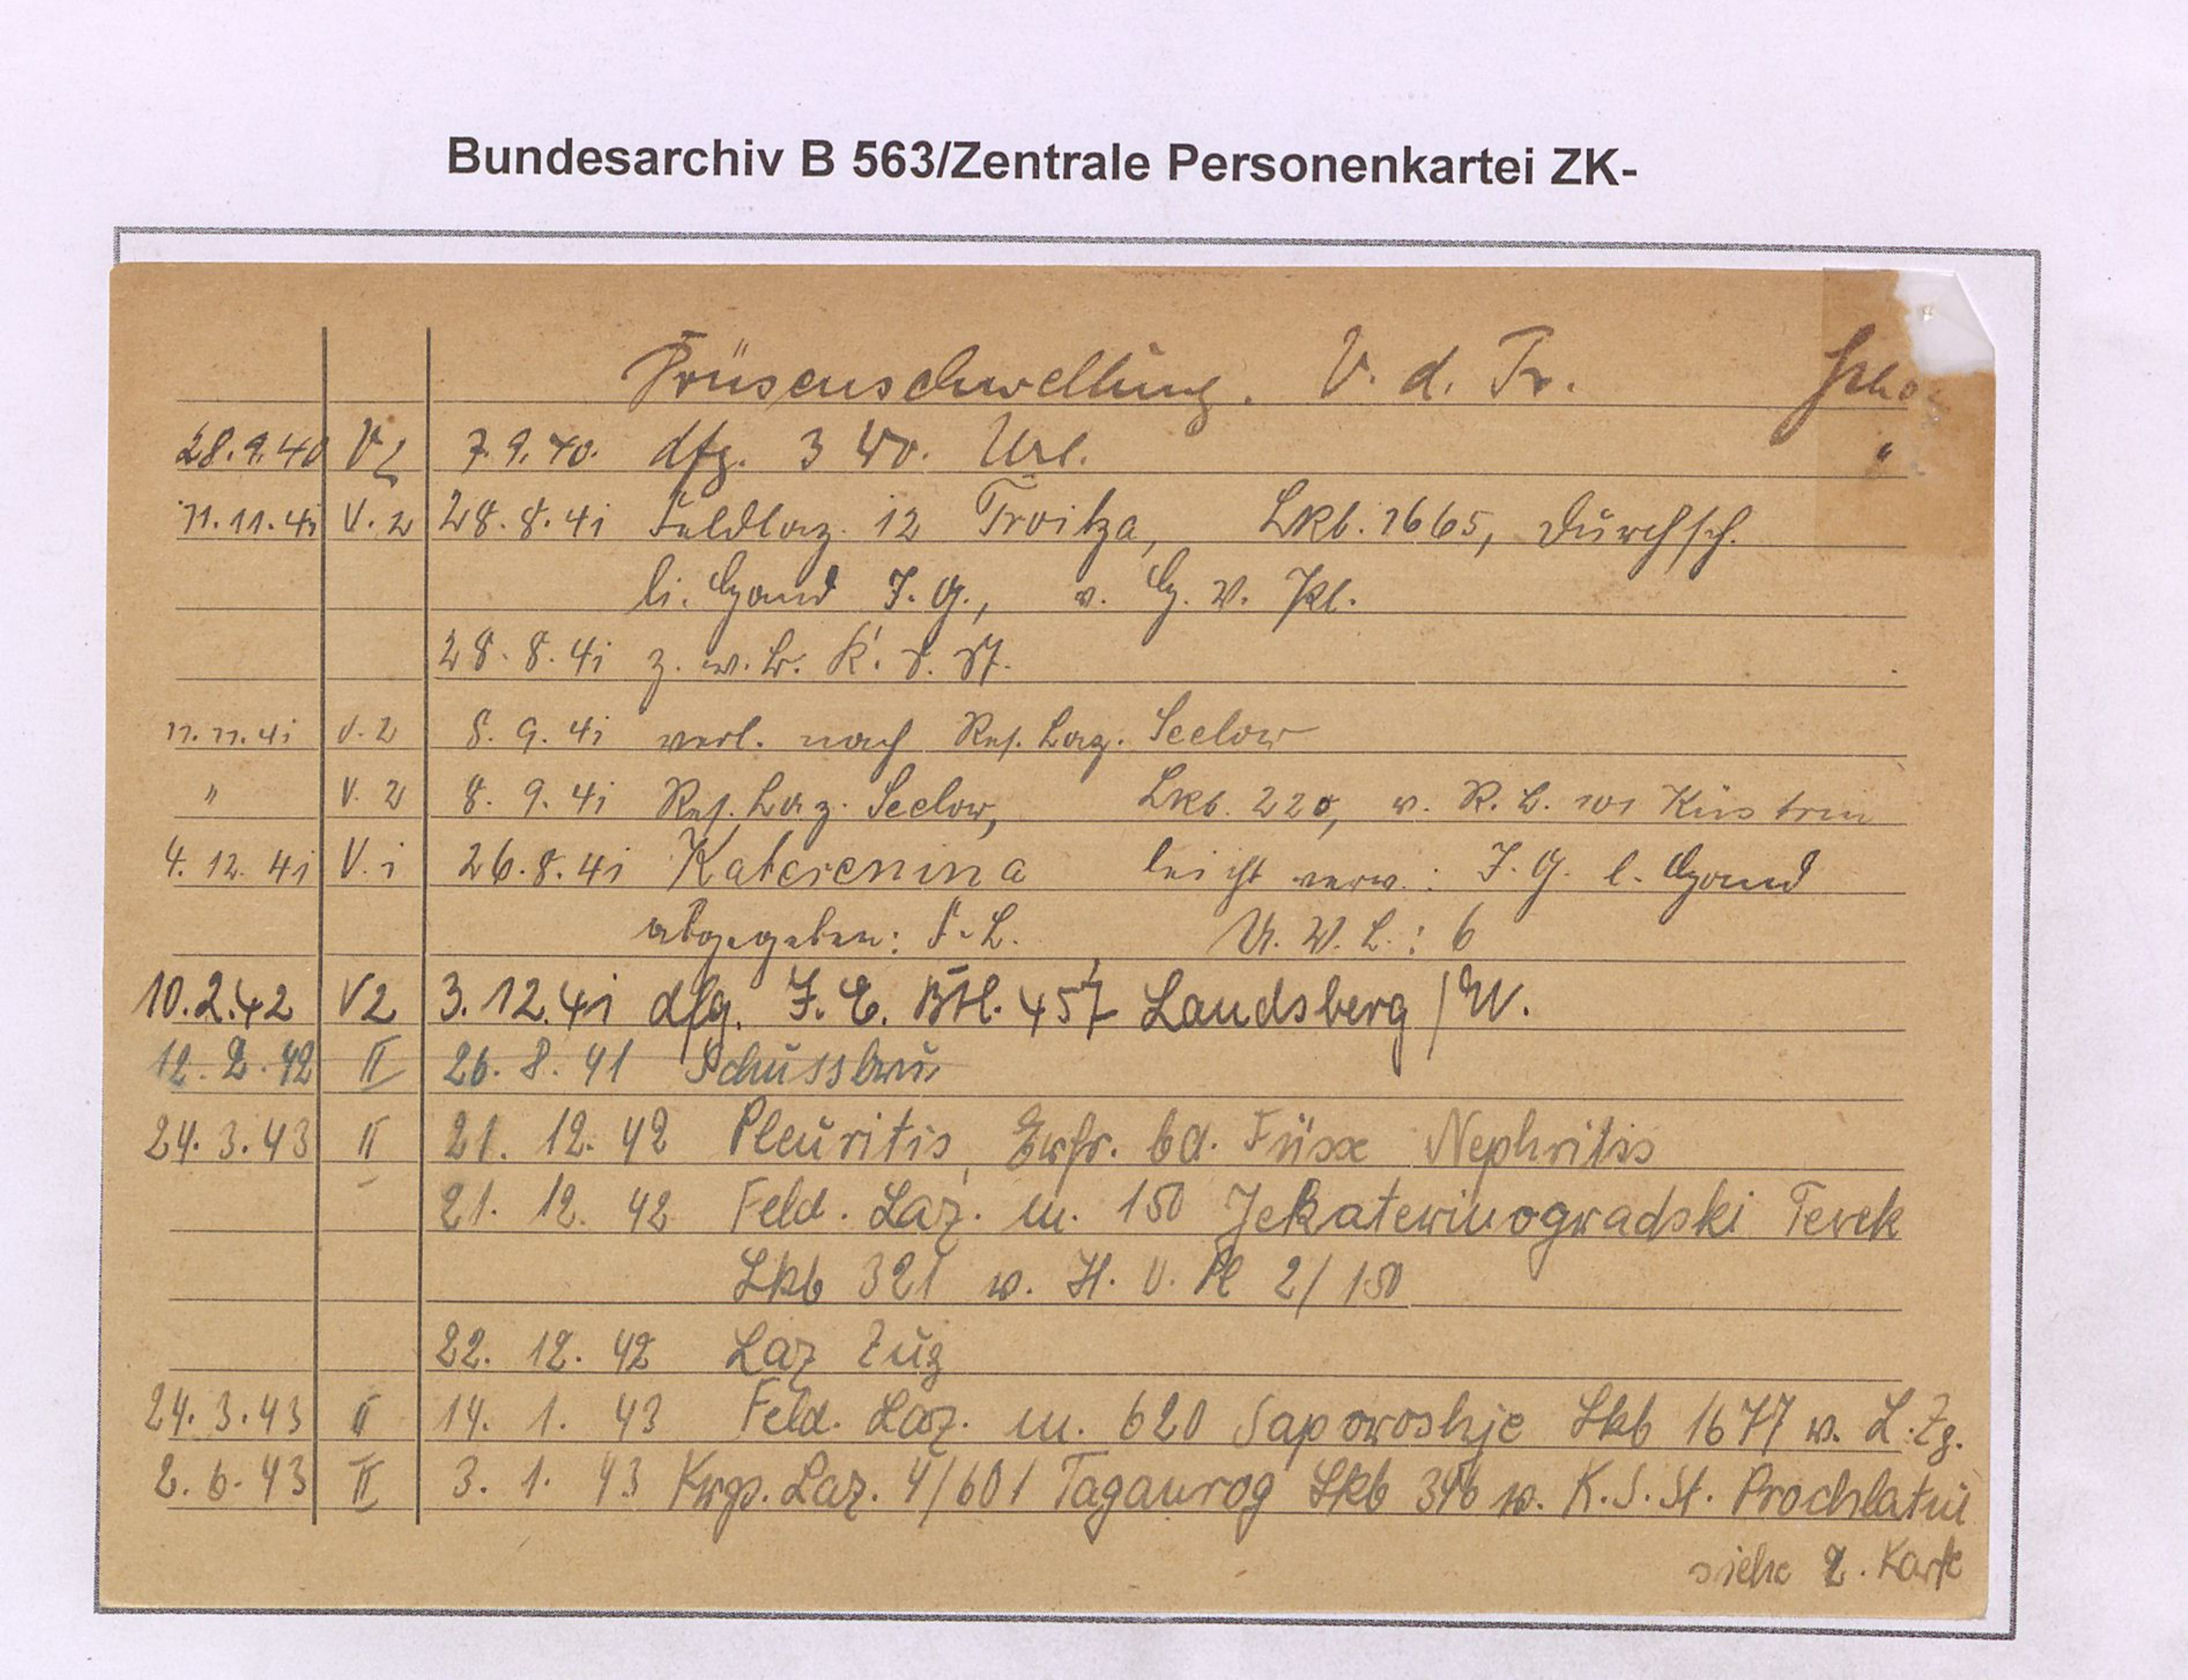 Bundesarchiv B 563/Zentrale Personenkartei ZK-
Drüsenschwellung. V. d. Tr.
28.9.40 V2 7.9.40. dfg. 3 Wo. Url. "
11.11.41 V.2 28.8.41 Feldlaz. 12 Troitza, Lkb. 1665, Durchsch.
li. Hand J.G., v. H. V. Pl.
28.8.41 z. w. Kr. S. St.
11.11.41 V.2 8.9.41 verl. nach Res. Laz. Seelow
" V.2 8.9.41 Res. Laz. Seelow, Lkb. 220, v. R. L. 101 Küstrin
4.12.41 V.i 26.8.41 Katerenina leicht verw.: J.G. l. Hand
abgegeben: F.L. U.W.L.: 6
10.2.42 V2 3.12.41 dfg. J. E. Btl. 457 Landsberg/W.
12.2.42 II 26.8.41 Schussbru
24.3.43 II 21.12.42 Pleuritis, Erfr. bd. Füsse Nephritis
21.12.42 Feld. Laz. m. 150 Jekaterinogradski Terek
Lkb 321 w. H.V. Pl 2/150
22.12.42 Laz Zug
24.3.43 II 14.1.43 Feld. Laz. m. 620 Saporoshje Lkb 1677 w. L.Zg.
2.6.43 II 3.1.43 Krgs. Laz. 4/601 Taganrog Lkb 346 w. K.S.St. Prochlatni
siehe 2. Karte